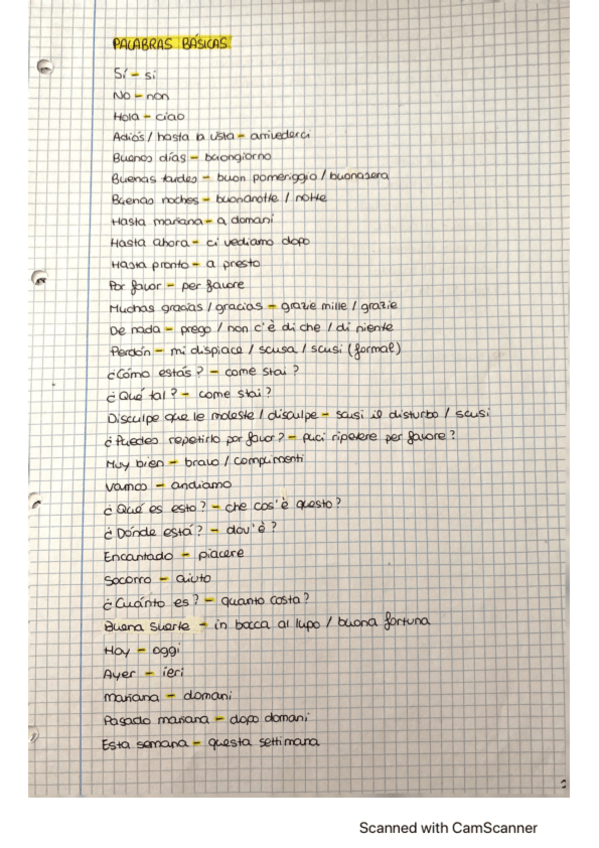 PALABRAS BÁSICAS
Sí - si
No - non
Hola - ciao
Adiós / hasta la vista - arrivederci
Buenos días - buongiorno
Buenas tardes - buon pomeriggio / buonasera
Buenas noches - buonanotte / notte
Hasta mañana - a domani
Hasta ahora - ci vediamo dopo
Hasta pronto - a presto
Por favor - per favore
Muchas gracias / gracias - grazie mille / grazie
De nada - prego / non c'è di che / di niente
Perdón - mi dispiace / scusa / scusi (formal)
¿Cómo estás? - come stai?
¿Qué tal? - come stai?
Disculpe que le moleste / disculpe - scusi il disturbo / scusi
¿Puedes repetirlo por favor? - puoi ripetere per favore?
Muy bien - bravo / complimenti
Vamos - andiamo
¿Qué es esto? - che cos'è questo?
¿Dónde está? - dov'è?
Encantado - piacere
Socorro - aiuto
¿Cuánto es? - quanto costa?
Buena suerte - in bocca al lupo / buona fortuna
Hoy - oggi
Ayer - ieri
mañana - domani
Pasado mañana - dopo domani
Esta semana - questa settimana
Scanned with CamScanner